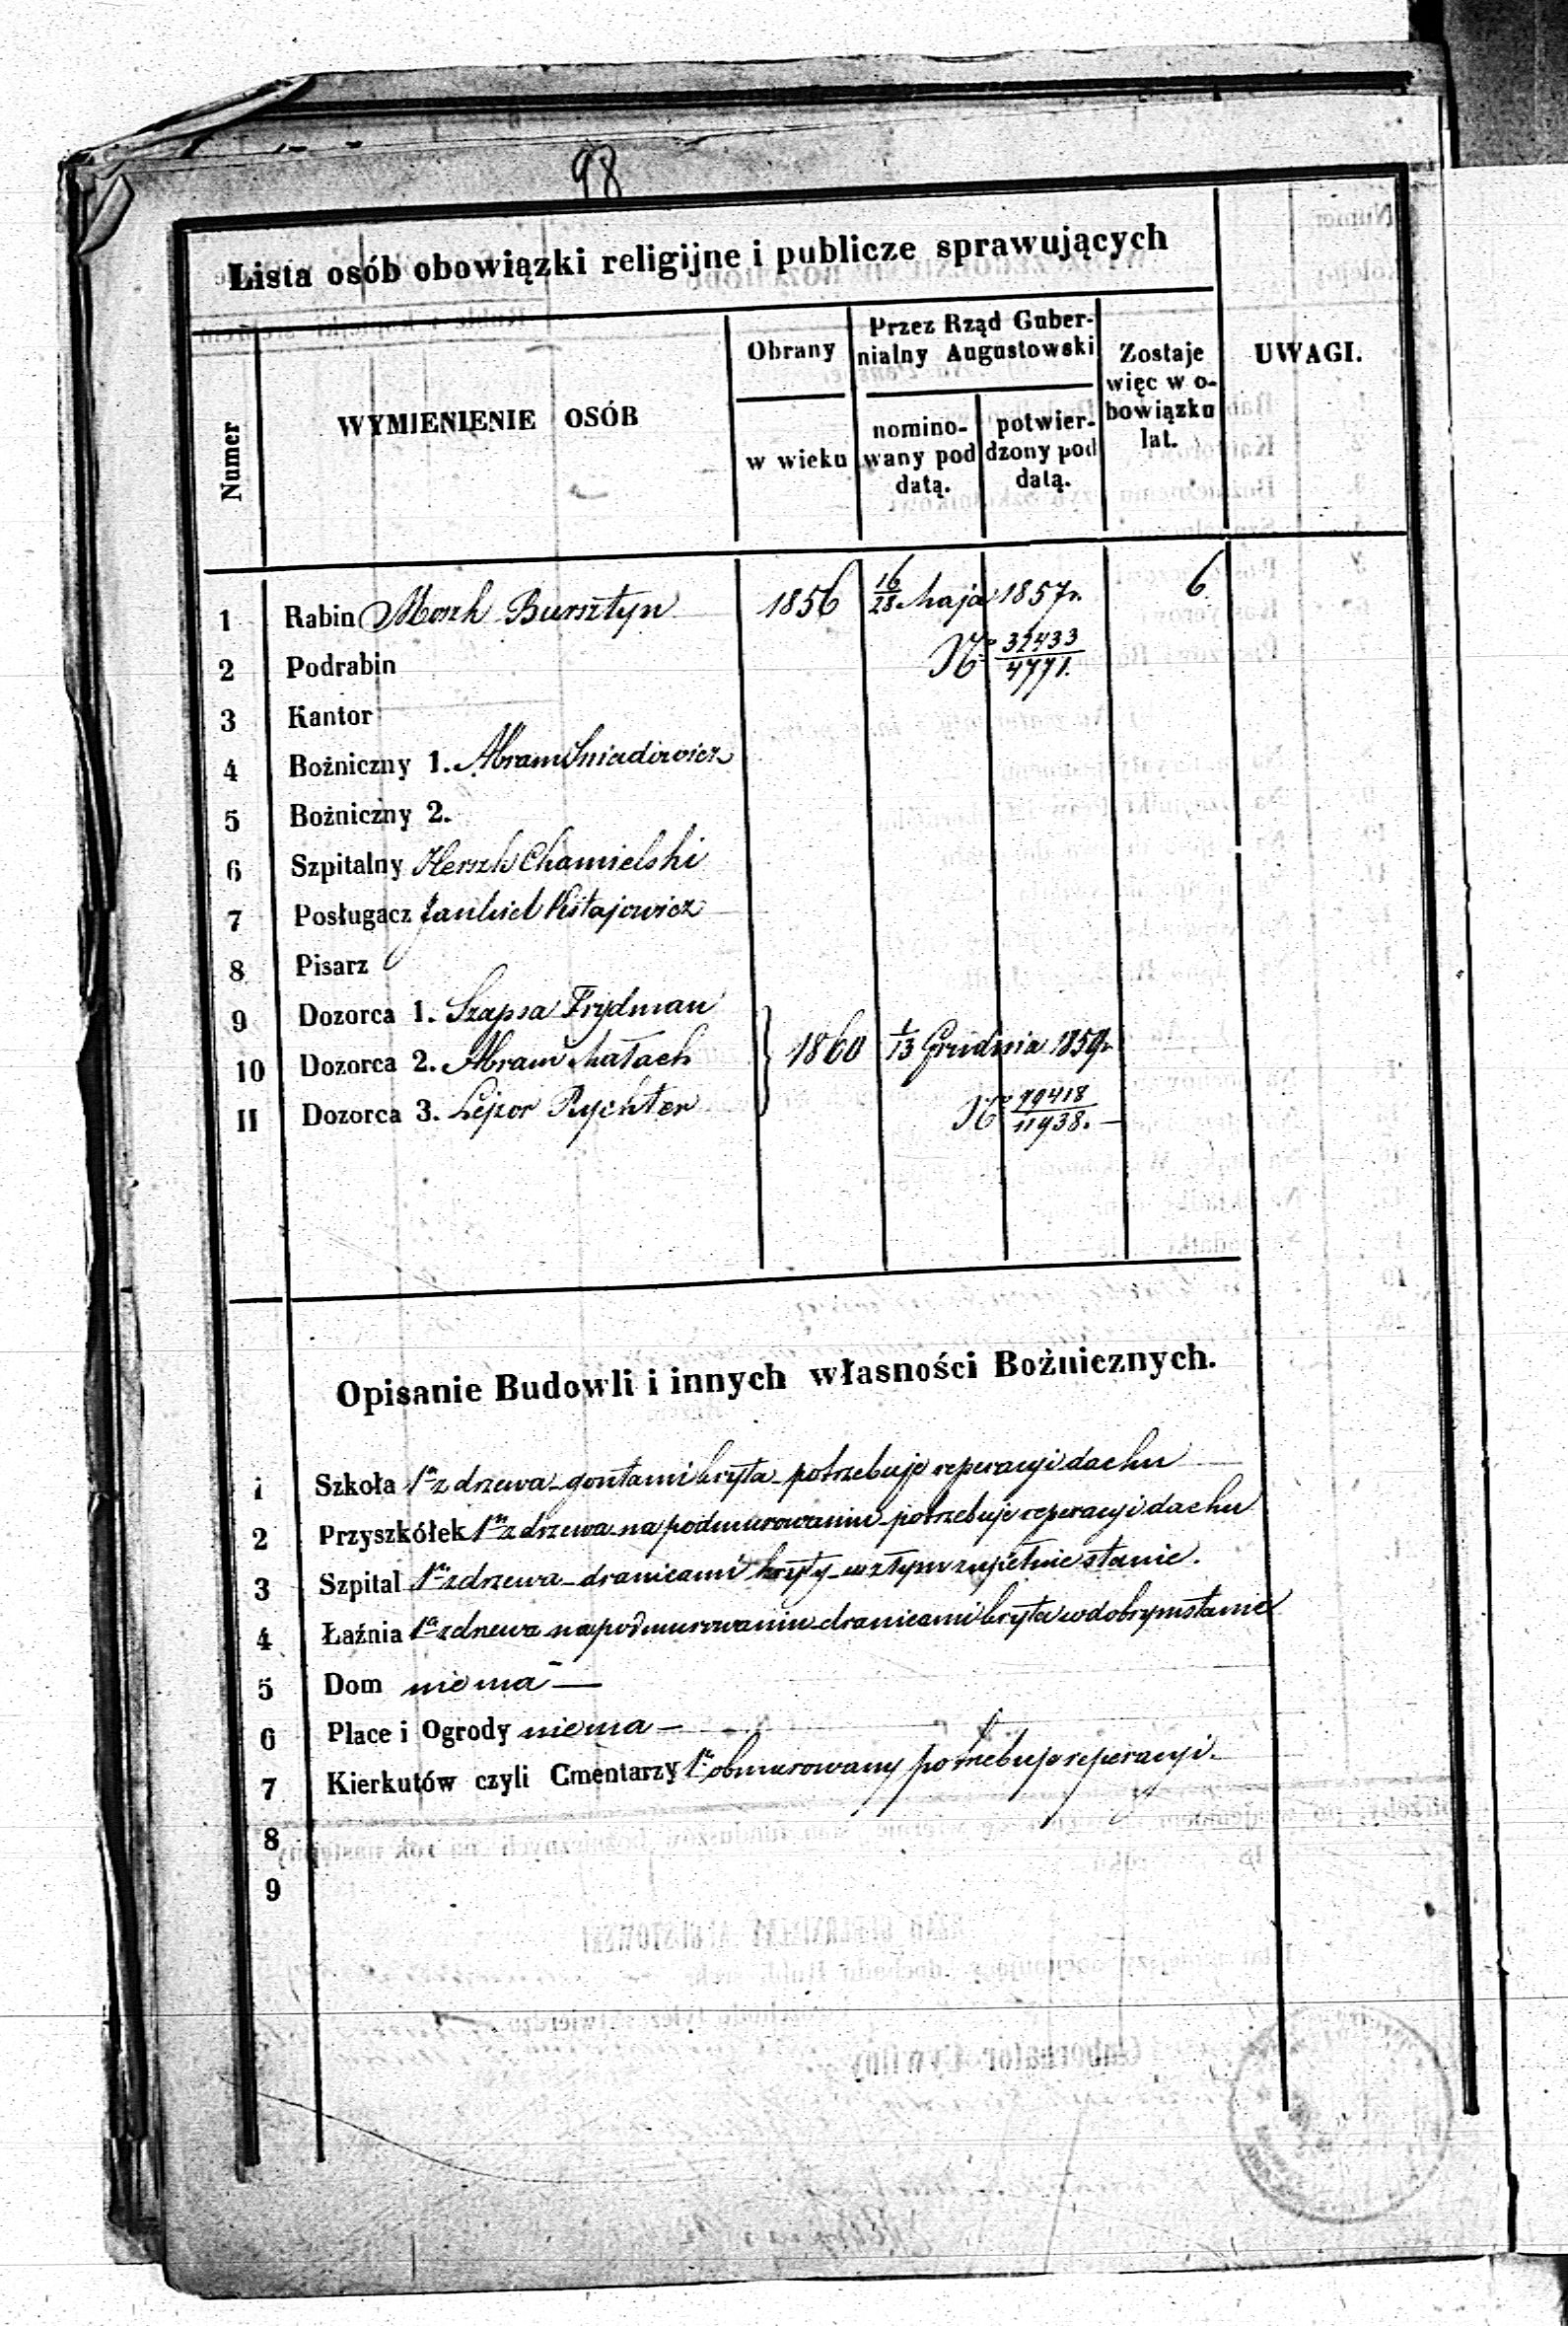 98
Lista osób obowiązki religijne i publicze sprawujących
Numer
WYMIENIENIE OSÓB
Obrany
w wieku
Przez Rząd Guber-
nialny Augustowski
nomino-
wany pod
datą.
potwier-
dzony pod
datą.
Zostaje
więc w o-
bowiązku
lat.
UWAGI.
1 Rabin Mosk Bursztyn 1856 16/28 Maja 1857 r. 6
№ 32433/4771.
2 Podrabin
3 Kantor
4 Bożniczny 1. Abram Sniadowicz
5 Bożniczny 2.
6 Szpitalny Herszk Chamielski
7 Posługacz Jankiel Kitajewicz
8 Pisarz
9 Dozorca 1. Szapsa Frydman
10 Dozorca 2. Abram Małach 1860 1/13 Grudnia 1859 r.
11 Dozorca 3. Lejzor Rychter № 79418/11938.
Opisanie Budowli i innych własności Bożniczných.
1 Szkoła 1a z drzewa gontami kryta potrzebuje reperacyi dachu
2 Przyszkółek 1n z drzewa na podmurowaniu potrzebuje reperacyi dachu
3 Szpital 1n z drzewa dranicami kryty w złym zupełnie stanie.
4 Łaźnia 1a z drzewa na podmurowaniu dranicami kryta w dobrym stanie
5 Dom niema —
6 Place i Ogrody niema —
7 Kierkutów czyli Cmentarzy 1n obmurowany potrzebuje reperacyi.
8
9